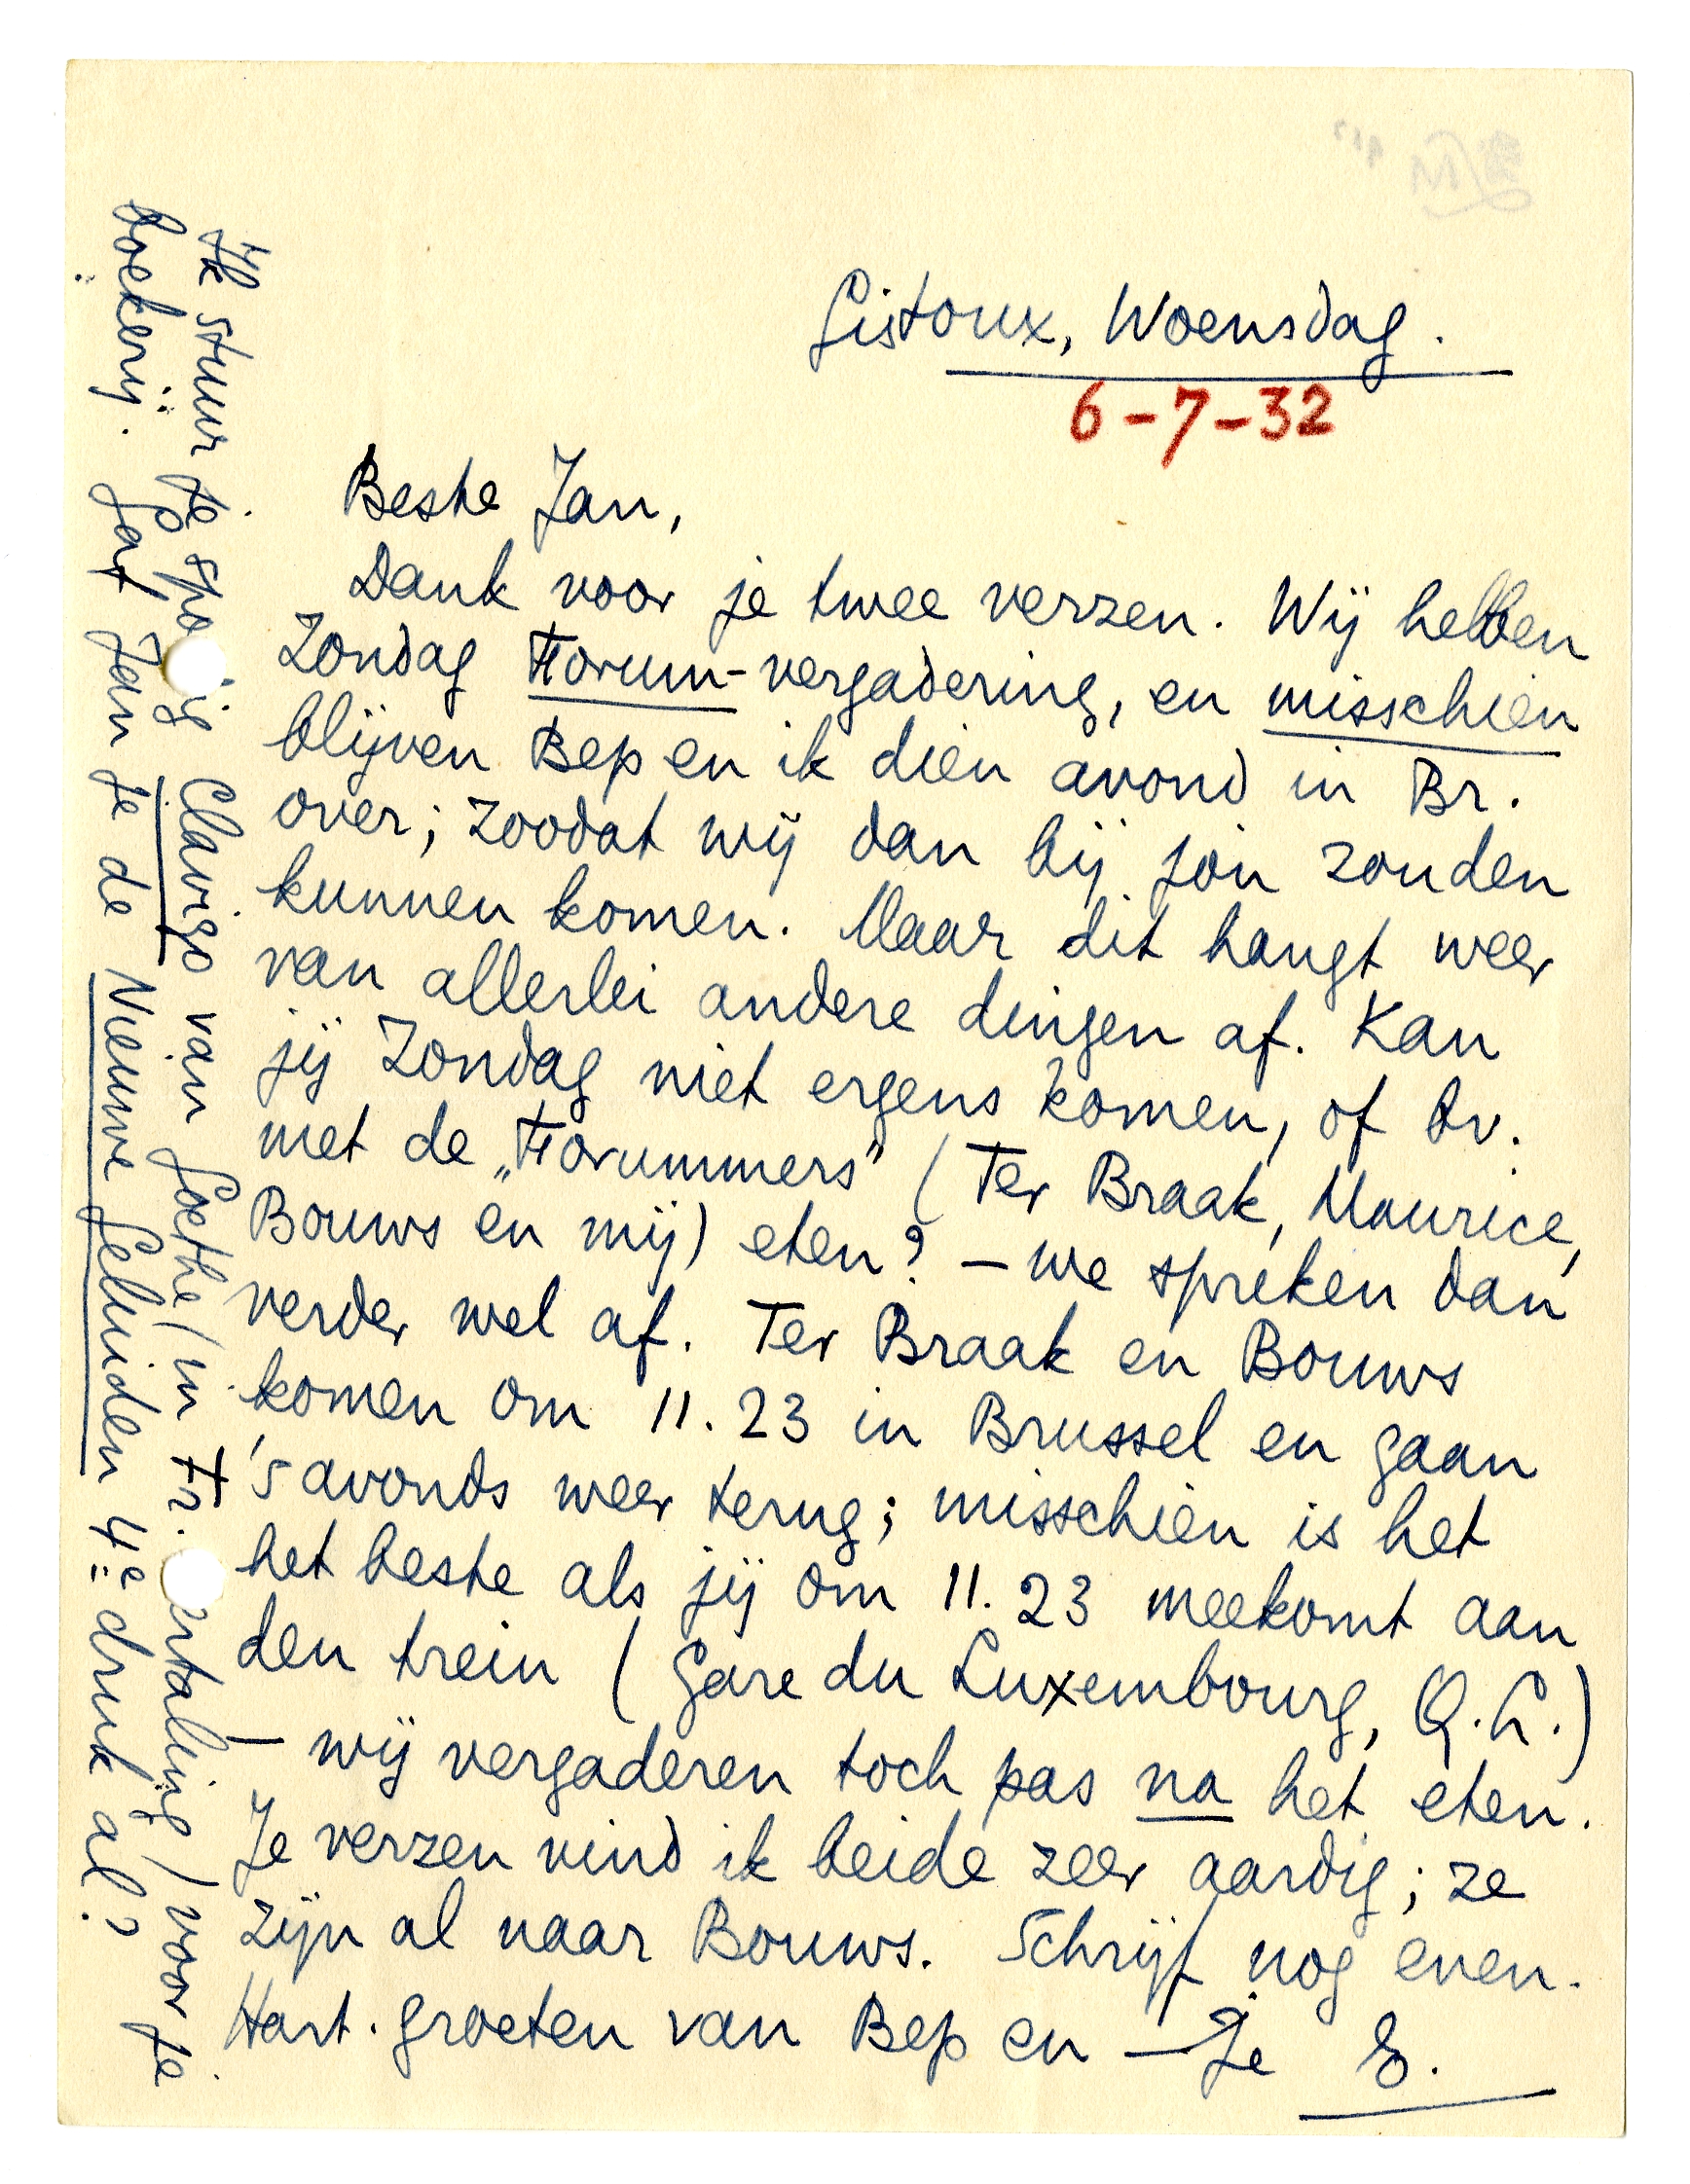 Gistoux, Woensdag.
6-7-32
Beste Jan,
Dank voor je twee verzen. Wij hebben
Zondag Forum-vergadering, en misschien
blijven Bep en ik dien avond in Br.
over; zoodat wij dan bij jou zouden
kunnen komen. Maar dit hangt weer
van allerlei andere dingen af. Kan
jij Zondag niet ergens komen, of bv.
met de „Forummers” (Ter Braak, Maurice,
Bouws en mij) eten? — we spreken dan
verder wel af. Ter Braak en Bouws
komen om 11.23 in Brussel en gaan
's avonds weer terug; misschien is het
het beste als jij om 11.23 meekomt aan
den trein (Gare du Luxembourg, Q.L.)
— wij vergaderen toch pas na het eten.
Je verzen vind ik beide zeer aardig; ze
zijn al naar Bouws. Schrijf nog even.
Hart. groeten van Bep en — Je E.
Ik stuur je spo ig Clavigo van Goethe (in Fr. ertaling) voor je
boekerij. Gaf Jan je de Nieuwe Geluiden 4e druk al?